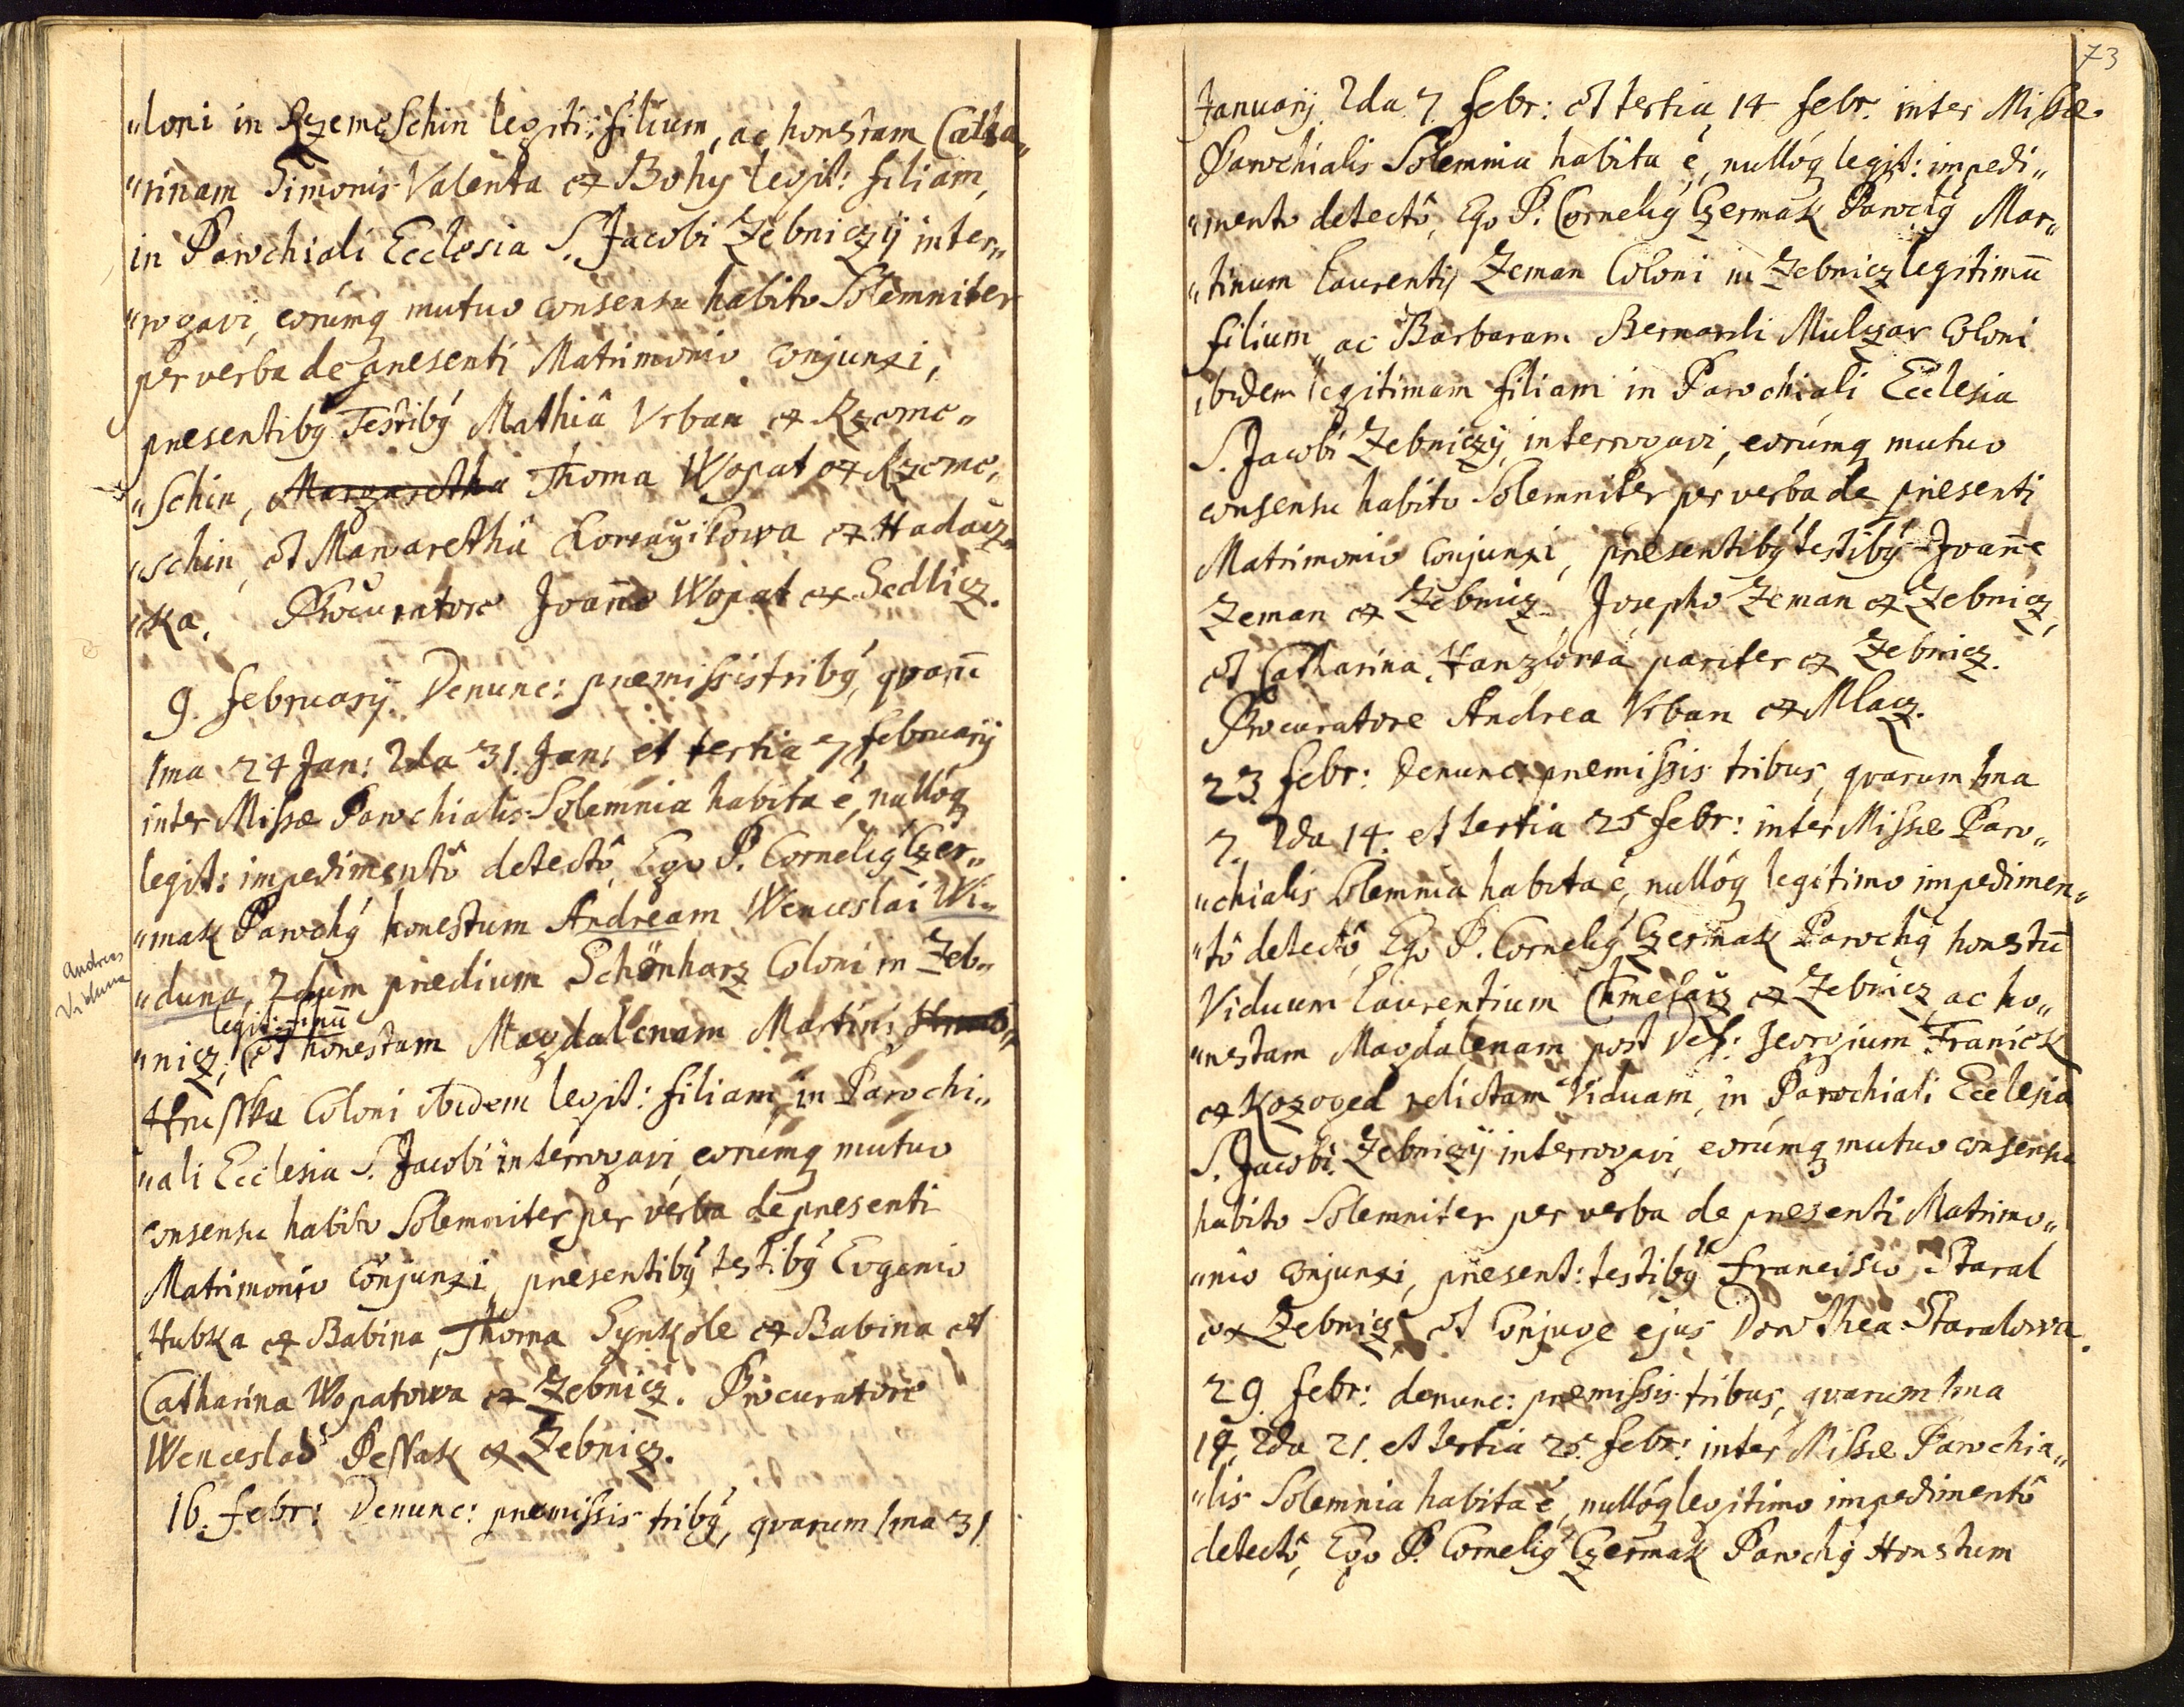 "loni in Rzemeschin legiti: filium, ac honestam Catha„
"rinam Simonis Valenta ex Bohy legit: filiam,
in Parochiali Ecclesia S. Jacobi Žebniczÿ inter„
"rogavi, eorúmq mutuo consensu habito Solemniter
per verba de præsenti Matrimonio conjunxi,
præsentibꝰ Testibꝰ Mathiâ Urban ex Rzeme„
"schin, Margaretha Thoma Wopat ex Rzeme,
"schin, et Margaretha ex Hadacz„
"ka. Procuratore Joanne Wopat ex Sedlicz.
9. februarÿ. Denunc: præmissis tribꝰ, qvarū
1ma 24 Jan: 2da 31. Jan: et tertia 7 februarÿ
inter Missæ Parochialis Solemnia habita é, nullóq
legit: impedimentô detectô, Ego P. Corneliꝰ Czer„
"mak Parochꝰ honestum Andream Wenceslai Wi„
Andreas
Viduna
"duna, 2dum prædium Schönharz Coloni in Žeb„
legit: filiū
"nicz, et honestam Magdalenam Martini
Hrusska Coloni ibidem legit: filiam, in Parochi„
"ali Ecclesia S. Jacobi interrogavi, eorúmq mutuo
consensu habito Solemniter per verba de præsenti
Matrimonio conjunxi, præsentibꝰ testibꝰ Eugenio
Hubka ex Babina, Thoma Synkole ex Babina et
Catharina Wopatowa ex Žebnicz. Procuratore
Wenceslao Pessak ex Žebnicz.
16. febr: Denunc: præmissis tribꝰ, qvarum 1ma 31
73
Januarÿ. 2da 7. febr: et tertia 14 febr. inter Missæ
Parochialis Solemnia habita é, nullóq legit: impedi„
"mento detectô, Ego P. Corneliꝰ Czermak Parochꝰ Mar„
"tinum Laurentij Zeman Coloni in Žebnicz legitimū
filium, ac Barbaram Bernardi Mulczar Coloni
ibidem legitimam filiam in Parochiali Ecclesia
S. Jacobi Žebniczÿ, interrogavi, eorúmq mutuo
consensu habito Solemniter per verba de præsenti
Matrimonio conjunxi, præsentibꝰ testibꝰ Joanne
Zeman ex Žebnicz, Josepho Zeman ex Žebnicz,
et Catharina Hanzlowa pariter ex Žebnicz.
Procuratore Andrea Urban ex Mlacz.
23 febr: Denunc: præmissis tribus, qvarum 1ma
7. 2da 14. et tertia 25 febr: inter Missæ Paro„
"chialis Solemnia habita é, nullóq legitimo impedimen„
"tô detectô, Ego P. Corneliꝰ Czermak Parochꝰ honestū
Viduum Laurentium Chmelarz ex Žebnicz, ac ho„
"nestam Magdalenam post Def: Georgium Franiek
ex Kozoged relictam Viduam, in Parochiali Ecclesia
S. Jacobi Žebniczÿ interrogavi, eorúmq mutuo consensu
habito Solemniter per verba de præsenti Matrimo„
"nio conjunxi, præsent: testibꝰ Francisco Staral
ex Žebnicz, et Conjuge ejus Dorothea Staralowa.
29. febr: denunc: præmissis tribus, qvarum 1ma
14. 2da 21. et tertia 25. febr: inter Missæ Parochia„
"lis Solemnia habita é, nullóq legitimo impedimentô
detectô, Ego P. Corneliꝰ Czermak Parochꝰ Honestum